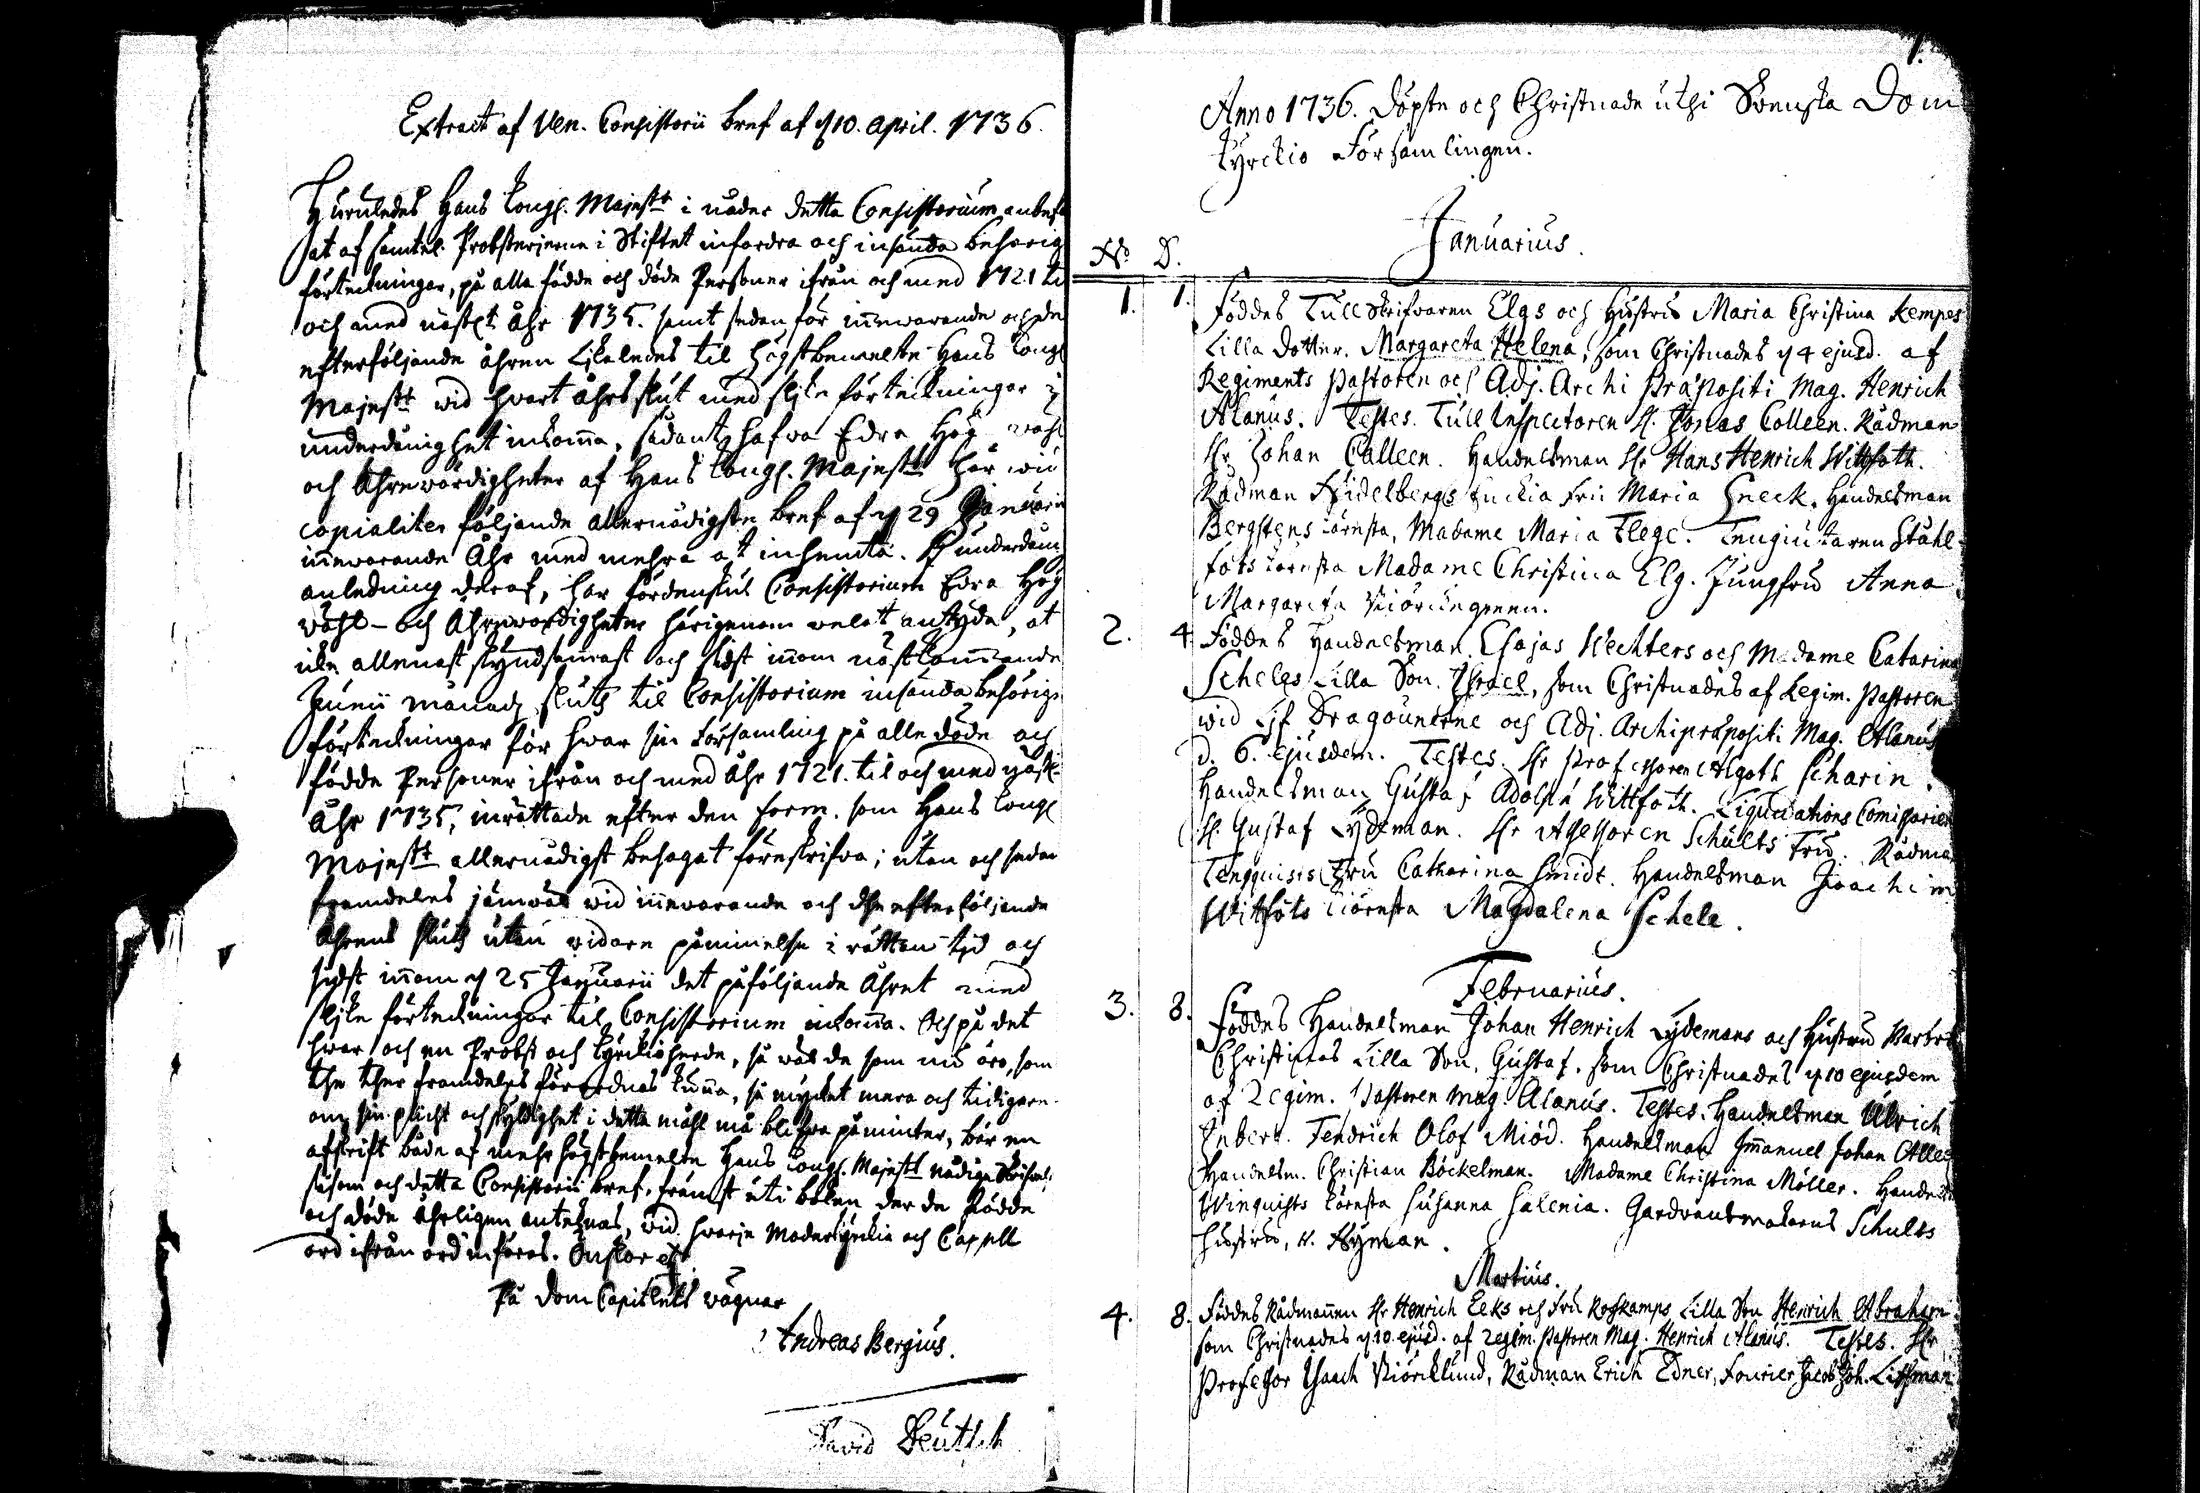 Extract af Ven. Consistorii bref af d 10. April. 1736.
Huruledes Hans Kongl. Majestt i nåder detta Consistorium anbefa
lat af samtel. Probsterjerne i Stiftet infordra och insända behörig
förteckningar, på alla födde och döde Personer ifrån och med 1721 ti
och med näst Åhr 1735. samt sedan för innewarande och de
efterföljande åhren likaledes til högstbemelte Hans Kongl
Majestt wid hwart åhrs slut med slika förteckningar i
underdånighet inkomma, sådant hafwa Edra Hög wähl
och Ährewördigheter af Hans Kongl. Majestt här wid
copialiter följande allernådigste bref af d 29 Januarii
innewarande Åhr med mehra at inhemta. I underdån
anledning deraf, har fördenskul Consistorium Edra Hög
wähl- och Ährewördigheter härigenom welat antyda, at
icke allenast skyndsammast och sidst innom nästkommande
Junii månadz slut til Consistorium insända behörige
förteckningar för hwar sin Församling på alle döde och
födde Personer ifrån och med Åhr 1721. til och med näst
Åhr 1735, inrättade efter den form. som Hans Kongl
Majestt allernådigst behagat föreskrifwa; utan och sedan
framdeles jämwäl wid innewarande och the efterföljande
Åhrens slut utan widare påminnelse i rättan tjd och
sidst innom d 25 Januarii det påföljande Åhret med
slike förteckningar til Consistorium inkomma. Och på det
hwar och en Probst och Kyrckioherde, så wäl de som nu äro, som
the ther framdeles förordnas kunna, så mycket mera och tidigare
om sin plicht och skyldighet i detta måhl må blifwa påminter, bör en
afskrift både af mehr högstbemelte Hans Kongl. Majestt nådige Skrifwel:
såsom och detta Consistorii bref, främst uti boken der de födde
och döde åhrligen antecknas, wid hwarje Moderkyrkia och Capell
ord ifrån ord införas.
På Dom Capitlets wägnar
Andreas Bergius.
David Deutsch
1.
Anno 1736. Döpte och Christnade uthi Svenska Dom
kyrckio Församlingen.
Januarius.
No D.
1. 1. Föddes Tullskrifvaren Elgs och Hustrus Maria Christina Kempes
Lilla dotter. Margareta Helena, som Christnades d 4 ejusd. af
Regiments Pastoren och Adj. Archi Præpositi Mag. Henrich
Alanus. Testes. Tull Inspectoren H. Jonas Colleen. Rådman
Hr Johan Calleen. Handelsman Hr Hans Henrich Wittfoth.
Rådman Heidelbergs Enckia Fru Maria Sneck. Handelsman
Bergstens käresta, Madame Maria Flege. Tengiutaren Ståhl-
fots käresta Madame Christina Elg. Jungfru Anna
Margareta Kiörkengreen.
2. 4 Föddes Handelsman Esajas Wechters och Madame Catarina
Scheles Lilla Son. Israel, som Christnades af Regim. Pastoren
wid Lif Dragounerne och Adj. Archipræpositi Mag. Alanus
d. 6. ejusdem. Testes. Hr Professoren Algoth Scharin.
Handelsman Gustaf Adolph Wittfoth. Liquidations Comissarien
H. Gustaf Lydeman. Hr Assessoren Schults Fru. Rådman
Tengquists Fru Catharina Smidt. Handelsman Joachim
Witfots kiäresta Magdalena Schele.
Februarius.
3. 8. Föddes Handelsman Johan Henrich Lydemans och Hustru Barbro
Christinas Lilla Son, Gustaf. som Christnades d 10 ejusdem
af Regim. Pastoren Mag. Alanus. Testes. Handelsman Ulrich
Inbert. Fendrich Olof Miöd. Handelsman Immanuel Johan Alle
Handelsm. Christian Böckelman. Madame Christina Möller. Handelsm
Winquists käresta Susanna Salenia. Gardvansmakarens Schults
hustru, N. Nyman.
Martius.
4. 8. Föddes Rådmannen Hr Henrich Eeks och Fru Roskamps Lilla Son Henrich Abraham
som Christnades d 10. ejusd. af Regim. Pastoren Mag. Henrich Alanus. Testes. Hr
Professor Isaach Biörcklund, Rådman Erich Edner, Fourier Jacob Joh. Lithman